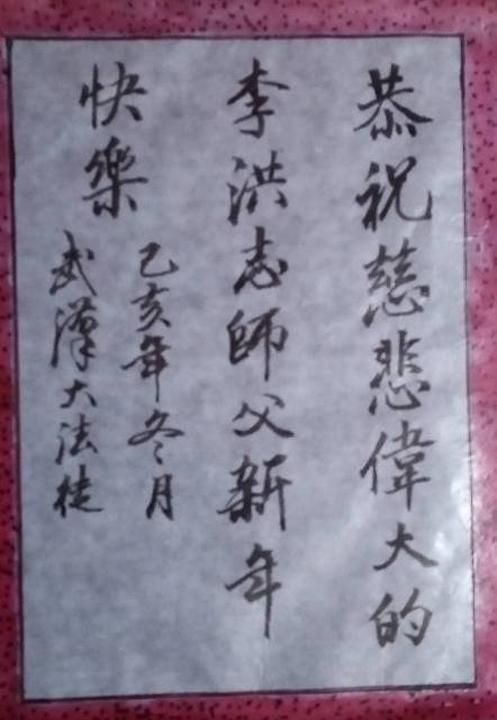 恭祝慈悲偉大的
李洪志師父新年
快樂
己亥年冬月
武漢大法徒